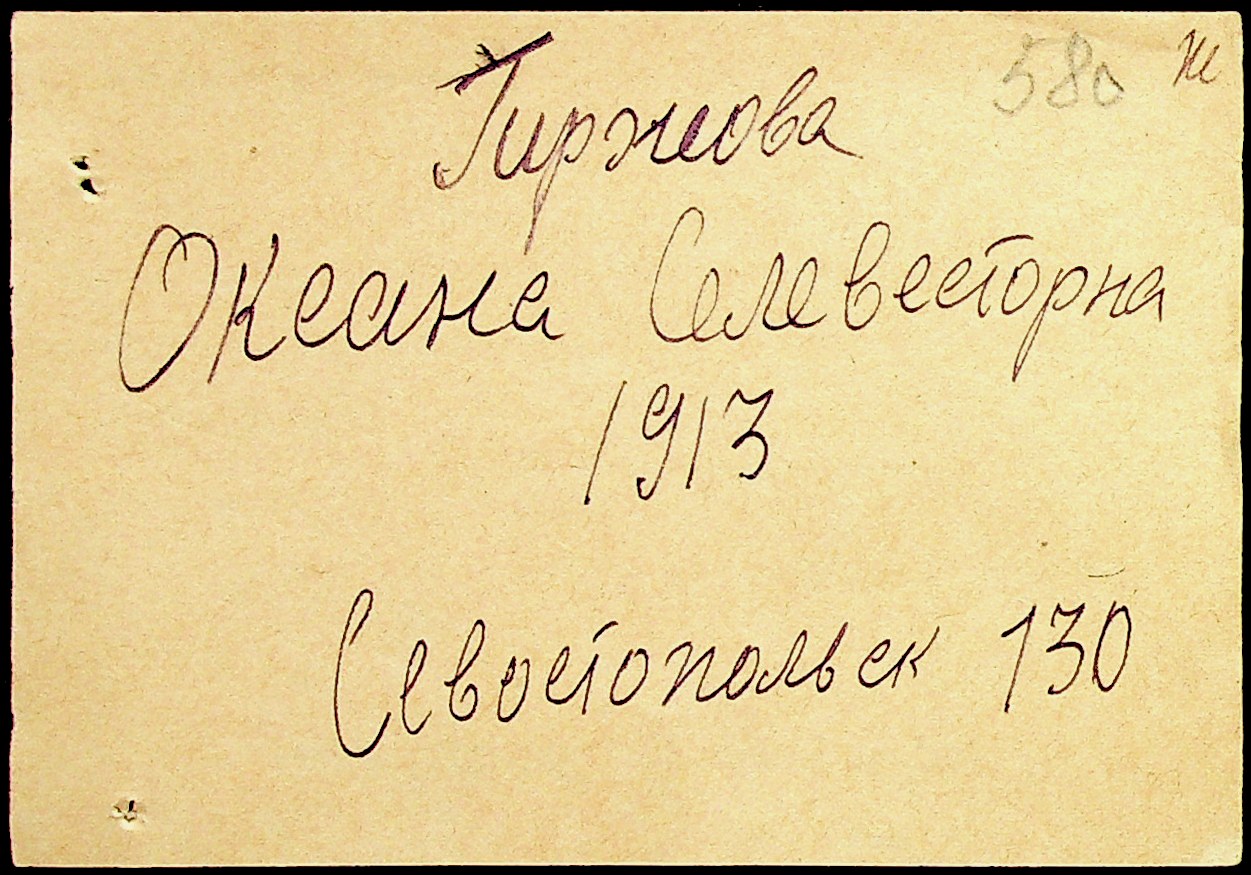 580 ж
Гиржова
Оксана Селевесторна
1913
Севостопольск 130